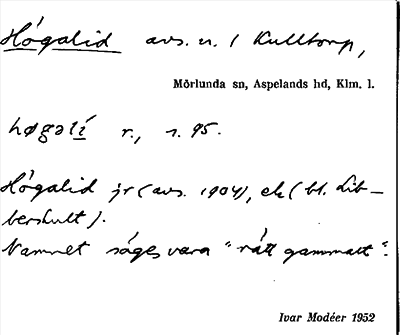 Högalid avs. u. / Kulltorp,
Mörlunda sn, Aspelands hd, Klm. l.
høgəlí r., s. 95.
Högalid jr (avs. 1904), ek (bl. Lib–
bershult).
Namnet säges vara "rätt gammalt".
Ivar Modéer 1952